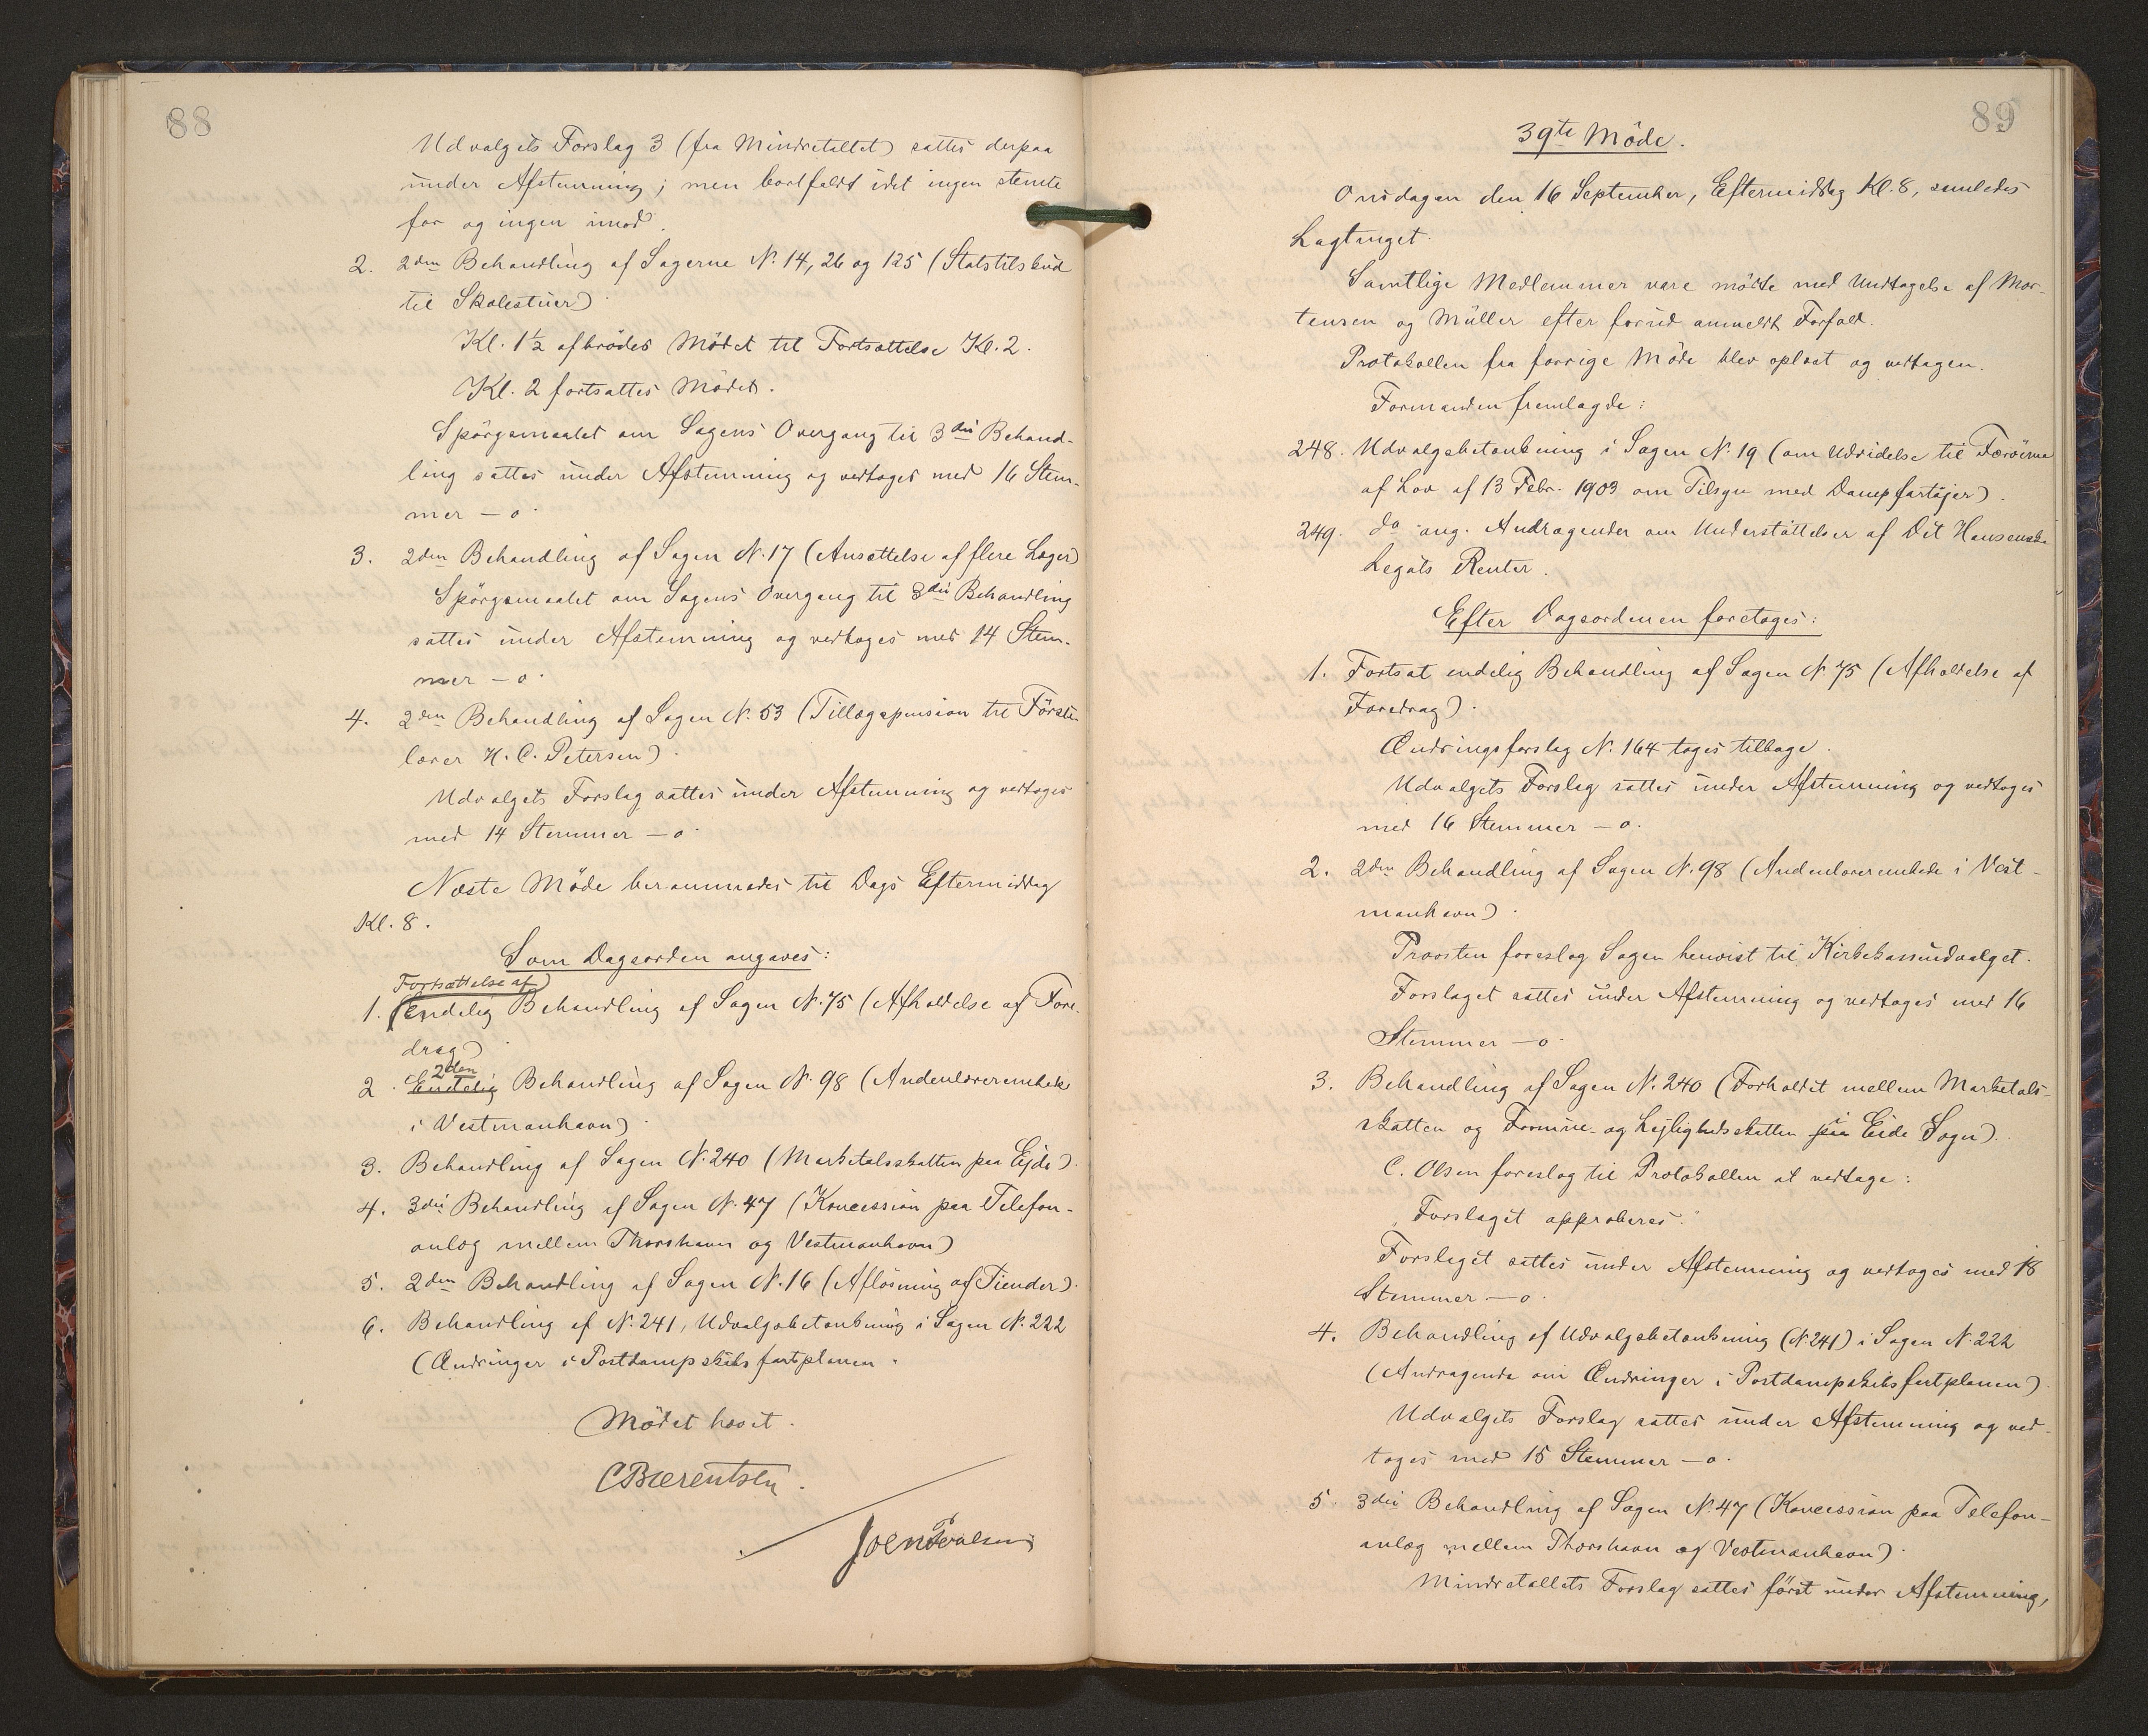 88
Udvalgets Forslag 3 (fra Mindretallet) sattes derpaa
under Afstemning; men bortfaldt idet ingen stemte
for og ingen imod.
2. 2den Behandling af Sagerne N. 14, 26 og 125 (Statstilskud
til Skolestuer).
Kl. 1½ afbrødes Mødet til Fortsættelse Kl. 2.
Kl. 2 fortsattes Mødet.
Spørgsmaalet om Sagens Overgang til 3die Behand-
ling sattes under Afstemning og vedtoges med 16 Stem-
mer – o.
3. 2den Behandling af Sagen N. 17 (Ansættelse af flere Læger)
Spørgsmaalet om Sagens Overgang til 3die Behandling
sattes under Afstemning og vedtoges med 14 Stem-
mer – o.
4. 2den Behandling af Sagen N. 53 (Tillægspension til Første-
lærer H. C. Petersen).
Udvalgets Forslag sattes under Afstemning og vedtoges
med 14 Stemmer – o.
Næste Møde berammedes til Dags Eftermiddag
Kl. 8.
Som Dagsorden angaves:
Fortsættelse af
1. Endelig Behandling af Sagen N. 75 (Afholdelse af Fore-
drag)
2den
2. Endelig Behandling af Sagen N. 98 (Andenlærerembede
i Vestmanhavn).
3. Behandling af Sagen N. 240 (Marketalsskatten paa Ejde).
4. 3die Behandling af Sagen N. 47 (Koncession paa Telefon-
anlæg mellem Thorshavn og Vestmanhavn)
5. 2den Behandling af Sagen N. 16 (Afløsning af Tiender).
6. Behandling af N. 241, Udvalgsbetænkning i Sagen N. 222
(Ændringer i Postdampskibsfartplanen.
Mødet hævet.
C Bærentsen.
Joen Poulsen
89
39te Møde.
Onsdagen den 16 September, Eftermiddag Kl. 8, samledes
Lagtinget.
Samtlige Medlemmer vare mødte med Undtagelse af Mor-
tensen og Müller efter forud anmeldt Forfald.
Protokollen fra forrige Møde blev oplæst og vedtagen.
Formanden fremlagde:
248. Udvalgsbetænkning i Sagen N. 19 (om Udvidelse til Færöerne
af Lov af 13 Febr. 1903 om Tilsyn med Dampfartøjer).
249. do ang. Andragender om Understøttelser af Det Hansenske
Legats Renter.
Efter Dagsordenen foretoges:
1. Fortsat endelig Behandling af Sagen N. 75 (Afholdelse af
Foredrag).
Ændringsforslag N. 164 toges tilbage.
Udvalgets Forslag sattes under Afstemning og vedtoges
med 16 Stemmer – o.
2. 2den Behandling af Sagen N. 98 (Andenlærerembede i Vest-
manhavn).
Provsten foreslog Sagen henvist til Kirkekasseudvalget.
Forslaget sattes under Afstemning og vedtoges med 16
Stemmer – o.
3. Behandling af Sagen N. 240 (Forholdet mellem Marketals-
i
skatten og Formue- og Lejlighedsskatten paa Eide Sogn).
C. Olsen foreslog til Protokollen at vedtage:
"Forslaget approberes."
Forslaget sattes under Afstemning og vedtoges med 18
Stemmer – o.
4. Behandling af Udvalgsbetænkning (N. 241) i Sagen N. 222
(Andragende om Ændringer i Postdampskibsfartplanen).
Udvalgets Forslag sattes under Afstemning og ved-
toges med 15 Stemmer – o.
5. 3die Behandling af Sagen N. 47 (Koncession paa Telefon-
anlæg mellem Thorshavn og Vestmanhavn).
Mindretallets Forslag sattes først under Afstemning,